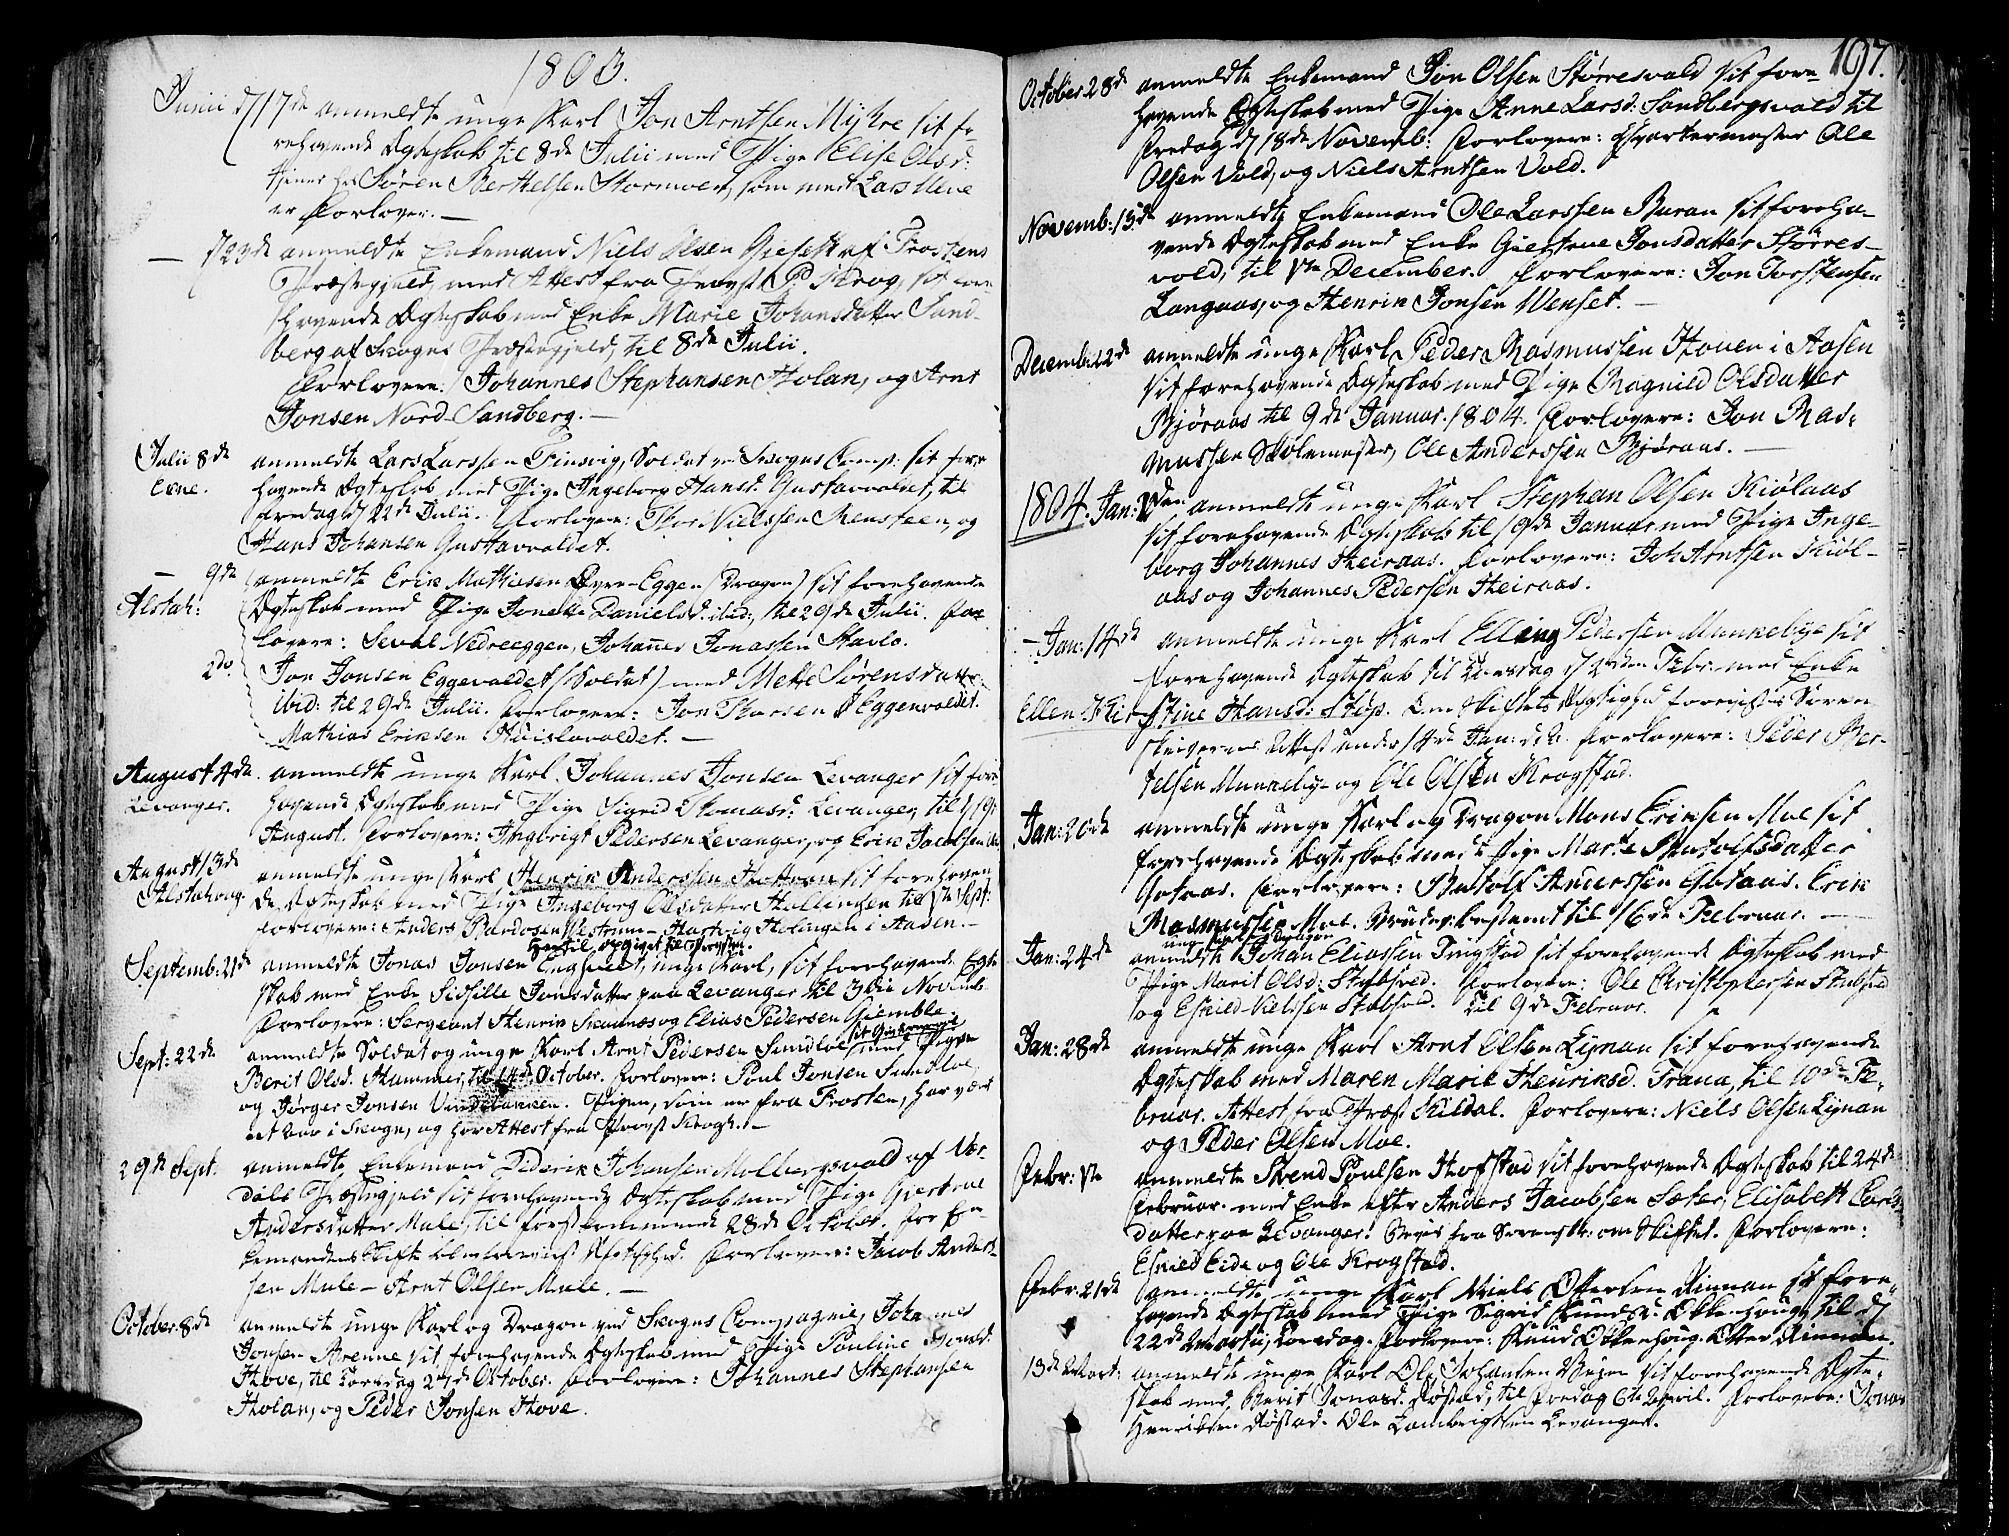 1803.
Junii d 17de anmeldte unge Karl Jon Arntsen Myhre sit fo-
rehavende Ægteskab til 8de Julii med Pige Elise Olsd:
tjener hos Søren Berthelsen Stormoen, som med Lars
er Forlover. —
— d 23de anmeldte Enkemand Niels Olsen af Frostens
Præstegjeld, med Attest fra Provst P. Krog, sit fore-
havende Ægteskab med Enke Marie Johansdatter Sand-
berg af Skognes Præstegjeld, til 8de Julii.
Forlovere: Johannes Stephansen Holan, og Arnt
Jonsen Nord-Sandberg. —
Julii 8de anmeldte Lars Larssen Finsvig, Soldat ved Skognes Comp: sit fore-
Ekne. havende Ægteskab med Pige Ingeborg Hansd: Gustavvaldet, til
Fredag d 22de Julii. Forlovere: Thor Nielssen Rensteen, og
Hans Johansen Gustavvaldet.
— 9de anmeldte Erik Mathiesen Øvre-Eggen (Dragon) sit forehavende
Alstah: Ægteskab med Pige Jonetta Danielsd: ibid:, til 29de Julii. For-
lovere: Sevald Nedreeggen, Johannes Jonassen Stavlo.
2do. Jon Jonsen Eggevaldet (Soldat) med Mette Sørensdatter
ibid: til 29de Julii. Forlovere: Jon Eggenvaldet.
Mathias Eriksen valdet. —
August 4de anmeldte unge Karl Johannes Jonsen Levanger sit fore-
Levanger. havende Ægteskab med Pige Sigrid Thomasd: Levanger, til d 19
August. Forlovere: Ingbrigt Pedersen Levanger, og Erik Jacobsen
August 13de anmeldte unge Karl Henrik Anderssen sit forehaven-
Alstahoug. de Ægteskab med Pige Ingeborg Olsdatter til 1ste Sept:
Forlovere: Anders Bardosen Vestrum — Hartvig i Aasen. —
Septemb: 21de anmeldte Jonas Jonsen unge Karl, sit forehavende Ægte-
skab med Enke Sidsille Jonsdatter paa Levanger til 3die Novemb:
Forlovere: Sergeant Henrik og Elias Pedersen Gjemble.
Sept: 22de anmeldte Soldat og unge Karl Arnt Pedersen Sundloe med Pigen
Berit Olsd. Hammer, til 14de October. Forlovere: Poul Jonsen Sundloe
og Jørger Jonsen Vindebakken. Pigen, som er fra Frosten, har været
et Aar i Skogn, og har Attest fra Provst Krogh. —
29de Sept. anmeldte Enkemand Diderik Johansen Molbergsvald af Vær-
dals Præstegjeld sit forehavende Ægteskab med Pige Giertrue
Andersdatter Mule, til førstkommende 28de October. For En-
kemandens Skifte Forlovere: Jacob Anders-
sen Mule — Arnt Olsen Mule. —
October 8de anmeldte unge Karl og Dragon ved Skogns Compagnie, Johannes
Jonsen Brenne sit forehavende Ægteskab med Pige Pauline Jonsd:
Hove, til Torsdag 27de October. Forlovere: Johannes Stephansen
Holan, og Peder Jonsen Hove.
197.
October 28de anmeldte Enkemand Jon Olsen Størresvald sit fore-
havende Ægteskab med Pige Anne Larsd: Sandbergsvald til
Fredag d 18de Novemb: Forlovere: Qvartermester Ole
Olsen Vold, og Niels Arntsen Vold.
Novemb: 13de anmeldte Enkemand Ole Larssen Buran sit foreha-
vende Ægteskab med Enke Giertrue Jonsdatter Størres-
vold, til 1ste December. Forlovere: Jon Torstensen
Langaas, og Henrik Jonsen Wenset. —
Decemb: 22de anmeldte unge Karl Peder Rasmussen Hoven i Aasen
sit forehavende Ægteskab med Pige Ragnild Olsdatter
Bjøraas til 9de Januar. 1804. Forlovere: Jon Ras-
mussen Skolemester, Ole Anderssen Bjøraas. —
1804. Jan: 2den anmeldte unge Karl Stephan Olsen Kiølaas
sit forehavende Ægteskab til 19de Januar med Pige Inge-
borg Johannes Heiraas. Forlovere: Joh Arntsen Kiøl-
aas og Johannes Pedersen Heiraas.
— Jan: 14de anmeldte unge Karl Elling Pedersen Munkebye sit
forehavende Ægteskab til Torsdag d 2den Febr: med Enke
Ellen Kirstine Hansd: Skip. Om Skiftets Rigtighed forevistes Soren-
skriverens Attest under 14de Jan: d. A. Forlovere: Peder Ber-
telsen Munkebye og Ole Olsen Krogstad.
Jan: 20de anmeldte unge Karl og Dragon Mons Eriksen Moe sit
forehavende Ægteskab med Pige Marte Botolfsdatter
Gotaas. Forlovere: Botolf Anderssen Gotaas. Erik
Rasmussen Moe. Bruden bestemt til 16de Februar. —
unge Karl og Dragon
Jan: 24de anmeldte Johan Eliassen Tingstad sit forehavende Ægteskab med
Pige Marit Olsd: Skabferd. Forlovere: Ole Christophersen
og Eskild Nielsen Skabferd. Til 9de Februar.
Jan: 28de anmeldte unge Karl Arnt Olsen Lynan sit forehavende
Ægteskab med Maren Marie Henriksd. Trana, til 10de Fe-
bruar. Attest fra Præst Kildal. Forlovere: Niels Olsen Lynan
og Peder Olsen Moe.
Febr: 1ste anmeldte Svend Poulsen Hofstad sit forehavende Ægteskab til 24de
Februar. med Enke efter Anders Jacobsen Sæter, Elisabeth Lars-
datter paa Levanger. Bevis fra Sorenskr: om Skiftet. Forlovere:
Eskild Eide og Ole Krogstad.
Febr: 21de anmeldte unge Karl Niels Ottersen Rinnan sit fore-
havende Ægteskab med Pige Sigrid Knudsd: Okkenhoug, til d
22de Martii, Torsdag. Forlovere: Knud Okkenhoug. Otter Rinnan.
13de Mart: anmeldte unge Karl Ole Johansen sit forehavende Ægte-
skab med Berit Jonasd. Røstad, til Fredag 6te April. Forlovere: Jonas
Henriksen Røstad. Ole Lambrigtsen Levanger.